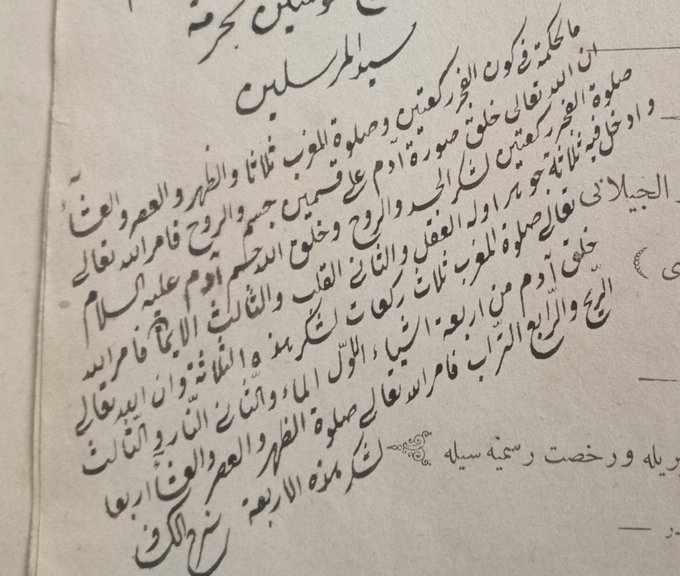 بحرمة
سيد المرسلين
ما الحكمة فى كون الفجر ركعتين وصلوة المغرب ثلاثا والظهر والعصر والعشآء
ان الله تعالى خلق صورة آدم على قسمين جسم والروح فامر الله تعالى
صلوة الفجر ركعتين لشكر الجسد والروح وخلق الله جسم آدم عليه السلام
وادخل فيه ثلاثة جوهر اوله العقل والثانى القلب والثالث الايمان فامر الله
تعالى صلوة المغرب ثلاث ركعات لشكر هذه الثلاثة وان الله تعالى
خلق آدم من اربعة اشياء الاوّل الماء والثّانى النّار والثّالث
الرّيح والرّابع التّراب فامر الله تعالى صلوة الظهر والعصر والعشآء اربعا
لشكر هذه الاربعة
الجيلانى
ورخصت رسميه سيله